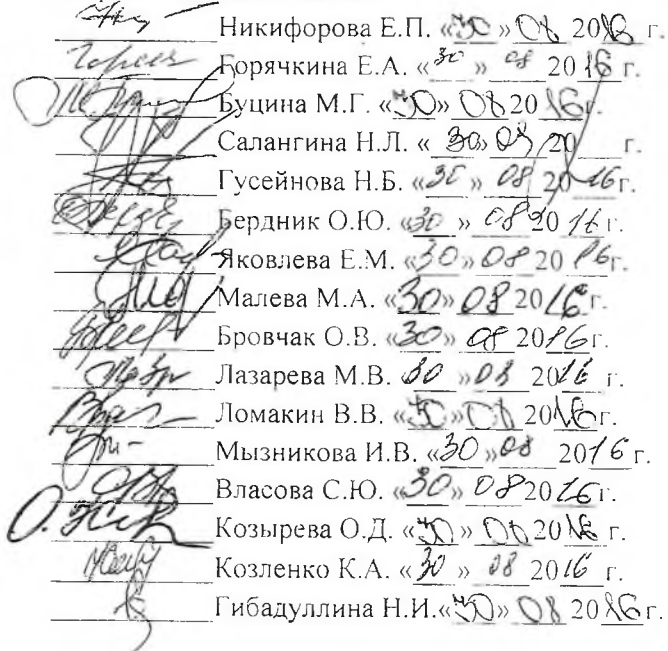 Никифорова Е.П. «30» 08 2016 г.
Горячкина Е.А. «30» 08 2016 г.
Буцина М.Г. «30» 08 2016г.
Салангина Н.Л. «30» 08 20 г.
Гусейнова Н.Б. «30» 08 2016г.
Бердник О.Ю. «30» 08 2016 г.
Яковлева Е.М. «30» 08 2016г.
Малева М.А. «30» 08 2016г.
Бровчак О.В. «30» 08 2016г.
Лазарева М.В. 30 » 08 2016 г.
Ломакин В.В. «30» 08 2016г.
Мызникова И.В. «30» 08 2016 г.
Власова С.Ю. «30» 08 2016г.
Козырева О.Д. «30» 08 2016 г.
Козленко К.А. «30» 08 2016 г.
Гибадуллина Н.И.«30» 08 2016г.